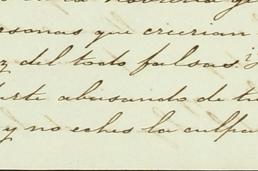 personas que creerian
z del todo falsas. ¿
arte abusando de tu
y no eches la culpa